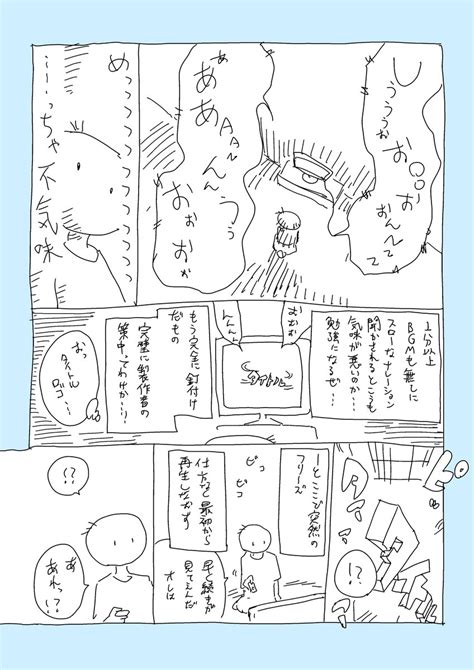 うぅぅぉ
お〇〇
おんててて
ああ
AAん
んんうぅ
おぉおぉ
めっっっっっっ
……っちゃ不気味
1分以上
BGMも無しに
スローなナレーション
聞かされるとこうも
気味が悪いのか…
勉強になるぜ…
おむおむ
んんん
タイトル
もう完全に釘付け
だもの
完璧に製作者の
策中ってわけか…！
おっ
タイトル
ロゴ…
ピ
タイト
!?
ーとここで突然の
フリーズ
ピコ
ピコ
仕方なく最初から
再生しなおす
早く続きが
見てえんだ
オレは
!?
あ
あれっ!?